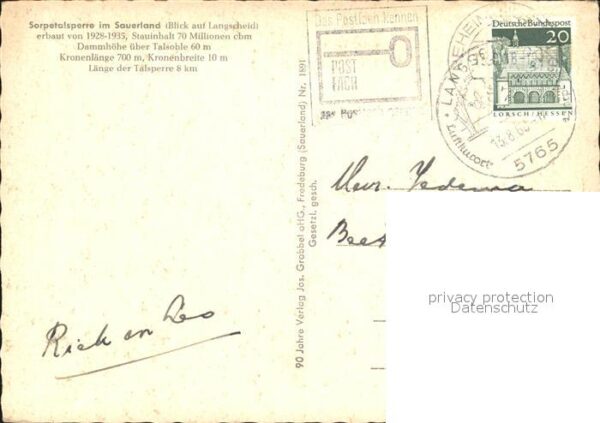 Sorpetalsperre im Sauerland (Blick auf Langscheid)
erbaut von 1928-1935, Stauinhalt 70 Millionen cbm
Dammhöhe über Talsohle 60 m
Kronenlänge 700 m, Kronenbreite 10 m
Länge der Talsperre 8 km
Das Postfach kennen
POST
FACH
Deutsche Bundespost
20
LORSCH/HESSEN
Luftkurort
13.8.6
5765
90 Jahre Verlag Jos. Grobbel oHG., Fredeburg (Sauerland) Nr. 1891
Gesetzl. gesch.
Mevr. Jedema
Beet
Riek en Leo
privacy protection
Datenschutz